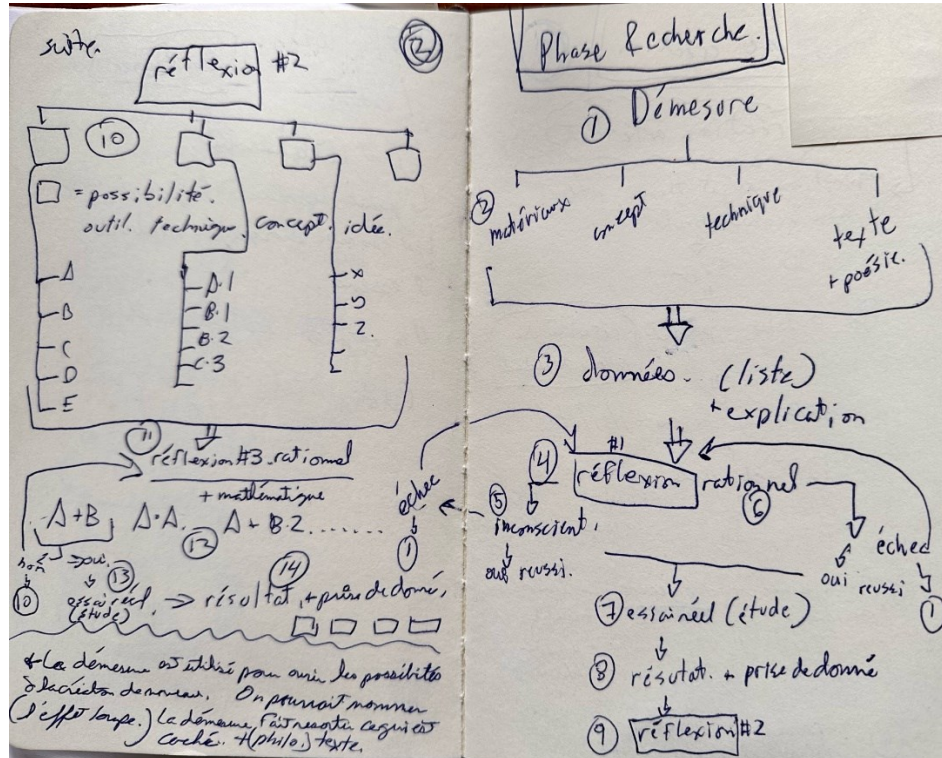 suite.
réflexion #2
②
⑩
□ = possibilité.
outil. technique. concept. idée.
A
B
C
D
E
A.1
B.1
B.2
C.3
x
y
z.
⑪
réflexion #3. rationnel
+ mathématique
A+B A.A. A + B.2.......
⑫
non oui.
⑩
⑬ essai réel (étude)
⑭
→ résultat, + prise de donné,
échec
①
* La démesure est utilisé pour ouvrir les possibilités
à la création de nouveau. On pourrait nommer
(l'effet loupe.) La démesure fait ressortir ce qui est
caché. + (philo.) texte.
Phase Recherche.
① Démesure
② matériaux concept technique texte
+ poésie.
③ données. (liste)
+ explication
#1
④ réflexion rationnel
⑤ inconscient.
⑥
oui reussi.
échec
oui reussi
①
⑦ essai réel (étude)
⑧ résutat. + prise de donné
⑨ réflexion #2